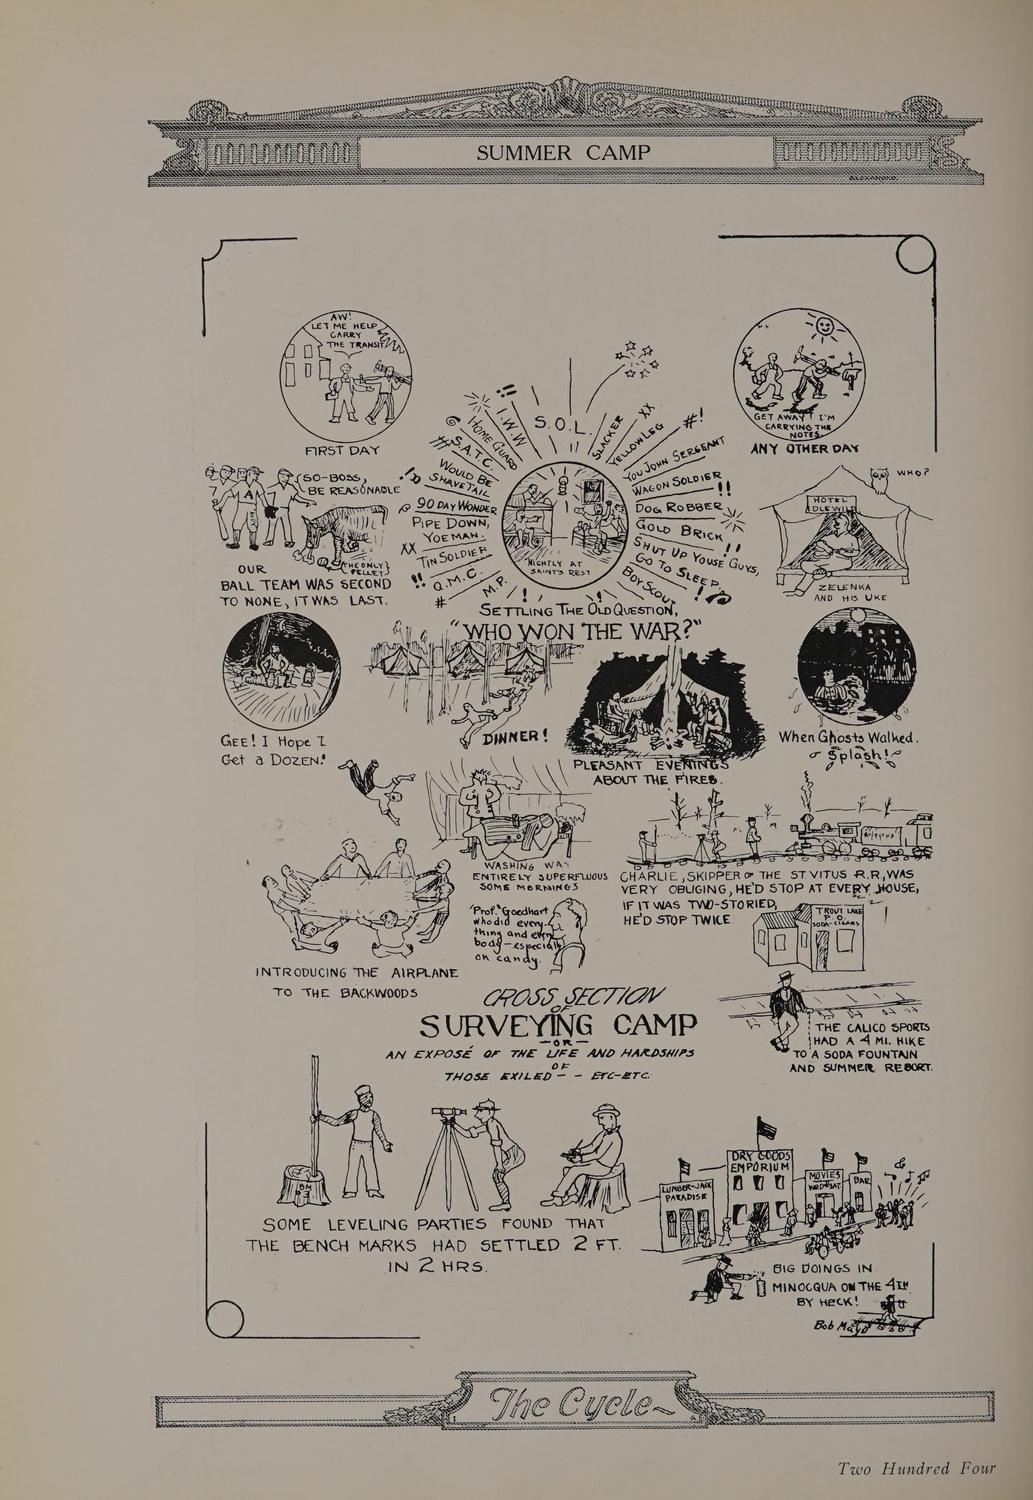 SUMMER CAMP
ALEXANDRO.
AW!
LET ME HELP
CARRY
THE TRANSIT
FIRST DAY
GET AWAY I'M
CARRYING THE
NOTES
ANY OTHER DAY
SO-BOSS,
BE REASONABLE
THE ONLY
PELLET
OUR
BALL TEAM WAS SECOND
TO NONE, IT WAS LAST.
S.O.L.
I.W.W
HOME GUARD
S.A.T.C.
WOULD BE
SHAVETAIL
90 DAY WONDER
PIPE DOWN,
YOEMAN.
XX
TIN SOLDIER
!!
Q.M.C.
#
M.P.
SLACKER
XX
YELLOW LEG
#!
YOU JOHN SERGEANT
WAGON SOLDIER
!!
DOG ROBBER
GOLD BRICK
!!
SHUT UP YOUSE GUYS,
GO TO SLEEP
BOY SCOUT
NIGHTLY AT
SAINT'S REST
SETTLING THE OLD QUESTION,
"WHO WON THE WAR?"
WHO?
HOTEL
IDLEWILD
ZELENKA
AND HIS UKE
GEE! I Hope I
Get a DOZEN!
DINNER!
PLEASANT EVENINGS
ABOUT THE FIRES.
When Ghosts Walked.
or Splash!
WASHING WAS
ENTIRELY SUPERFLUOUS
SOME MORNINGS
CHARLIE, SKIPPER OF THE ST VITUS R.R, WAS
VERY OBLIGING, HE'D STOP AT EVERY HOUSE,
IF IT WAS TWO-STORIED,
HE'D STOP TWICE
"Prof." Goedhart
who did every-
thing and every
body - especially
on candy.
TROUT LAKE
P.O.
SODA-CIGARS
INTRODUCING THE AIRPLANE
TO THE BACKWOODS
CROSS SECTION
OF
SURVEYING CAMP
-OR-
AN EXPOSÉ OF THE LIFE AND HARDSHIPS
OF
THOSE EXILED - - ETC-ETC.
THE CALICO SPORTS
HAD A 4 MI. HIKE
TO A SODA FOUNTAIN
AND SUMMER RESORT.
BM
SOME LEVELING PARTIES FOUND THAT
THE BENCH MARKS HAD SETTLED 2 FT.
IN 2 HRS.
LUMBER-JACK
PARADISE
DRY GOODS
EMPORIUM
MOVIES
WED & SAT.
BAR
BIG DOINGS IN
MINOCQUA ON THE 4TH
BY HECK!
Bob
The Cycle
Two Hundred Four